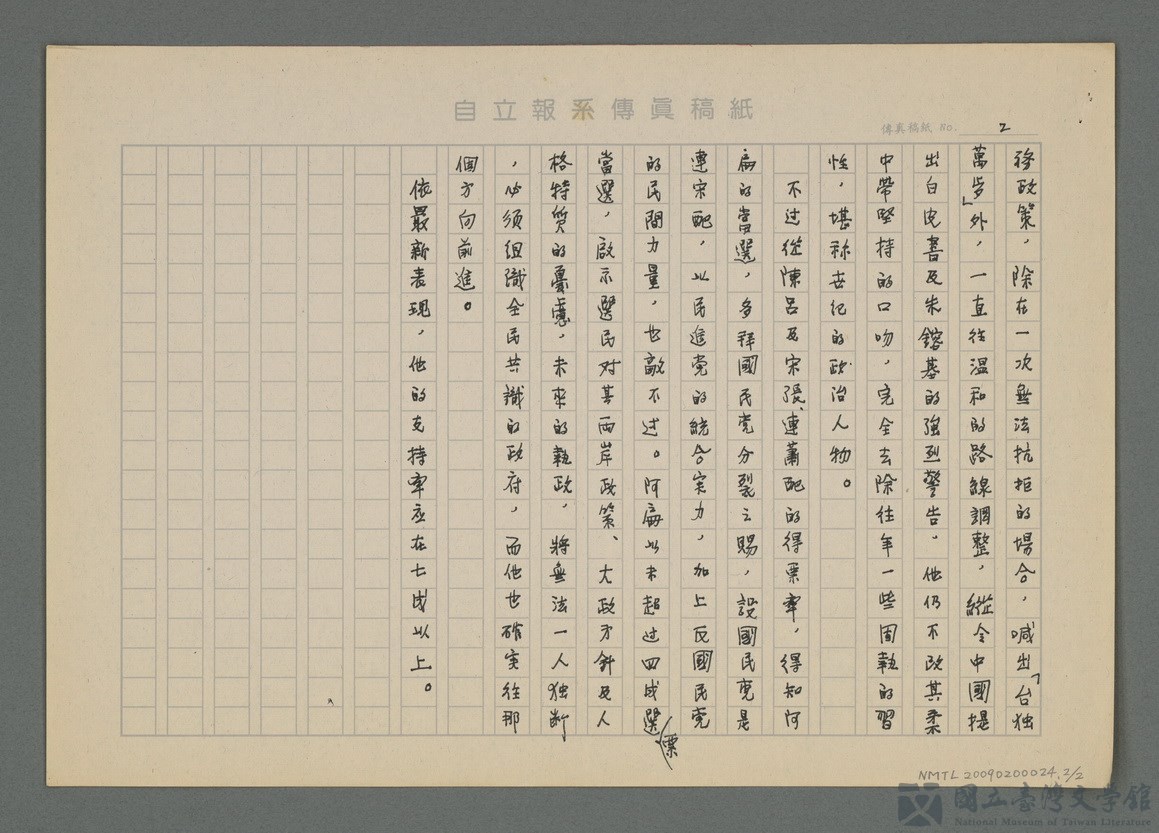 自立報系傳眞稿紙
傳真稿紙 NO. 2
務政策，除在一次無法抗拒的場合，喊出「台独
萬歲」外，一直往温和的路線調整，縱令中國提
出白皮書及朱鎔基的強烈警告，他仍不改其柔
中帶堅持的口吻，完全去除往年一些固執的習
性，堪称世紀的政治人物。
不过從陳呂及宋張、連蕭配的得票率，得知阿
扁的當選，多拜國民党分裂之賜，設國民党是
連宋配，以民進党的統合実力，加上反國民党
的民間力量，也敵不过。阿扁以未超过四成選票
當選，啟示選民对其兩岸政策、大政方針及人
格特質的憂慮，未來的執政，將無法一人独断
，必須組織全民共識的政府，而他也確实往那
個方向前進。
依最新表現，他的支持率应在七成以上。
NMTL 20090200024, 2/2
國立臺灣文學館
National Museum of Taiwan Literature